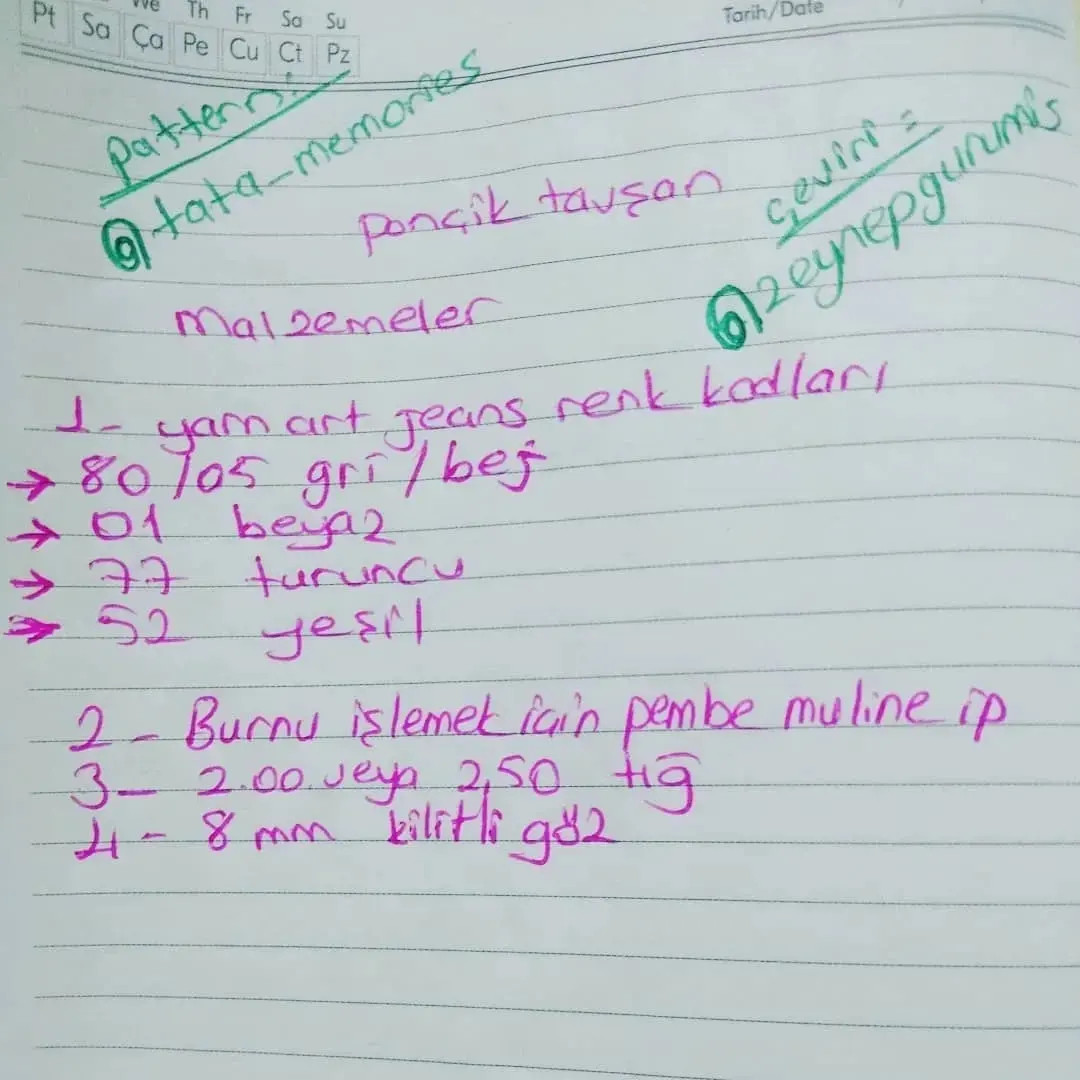 We Th Fr Sa Su
Pt Sa Ça Pe Cu Ct Pz
Tarih/Date
pattern:
@tata_memories
çeviri =
@zeynepgurumis
ponçik tavşan
malzemeler
1- yarn art jeans renk kodları
→ 80/05 gri/bej
→ 01 beyaz
→ 77 turuncu
→ 52 yeşil
2- Burnu işlemek için pembe muline ip
3- 2.00 veya 2,50 tığ
4- 8 mm kilitli göz